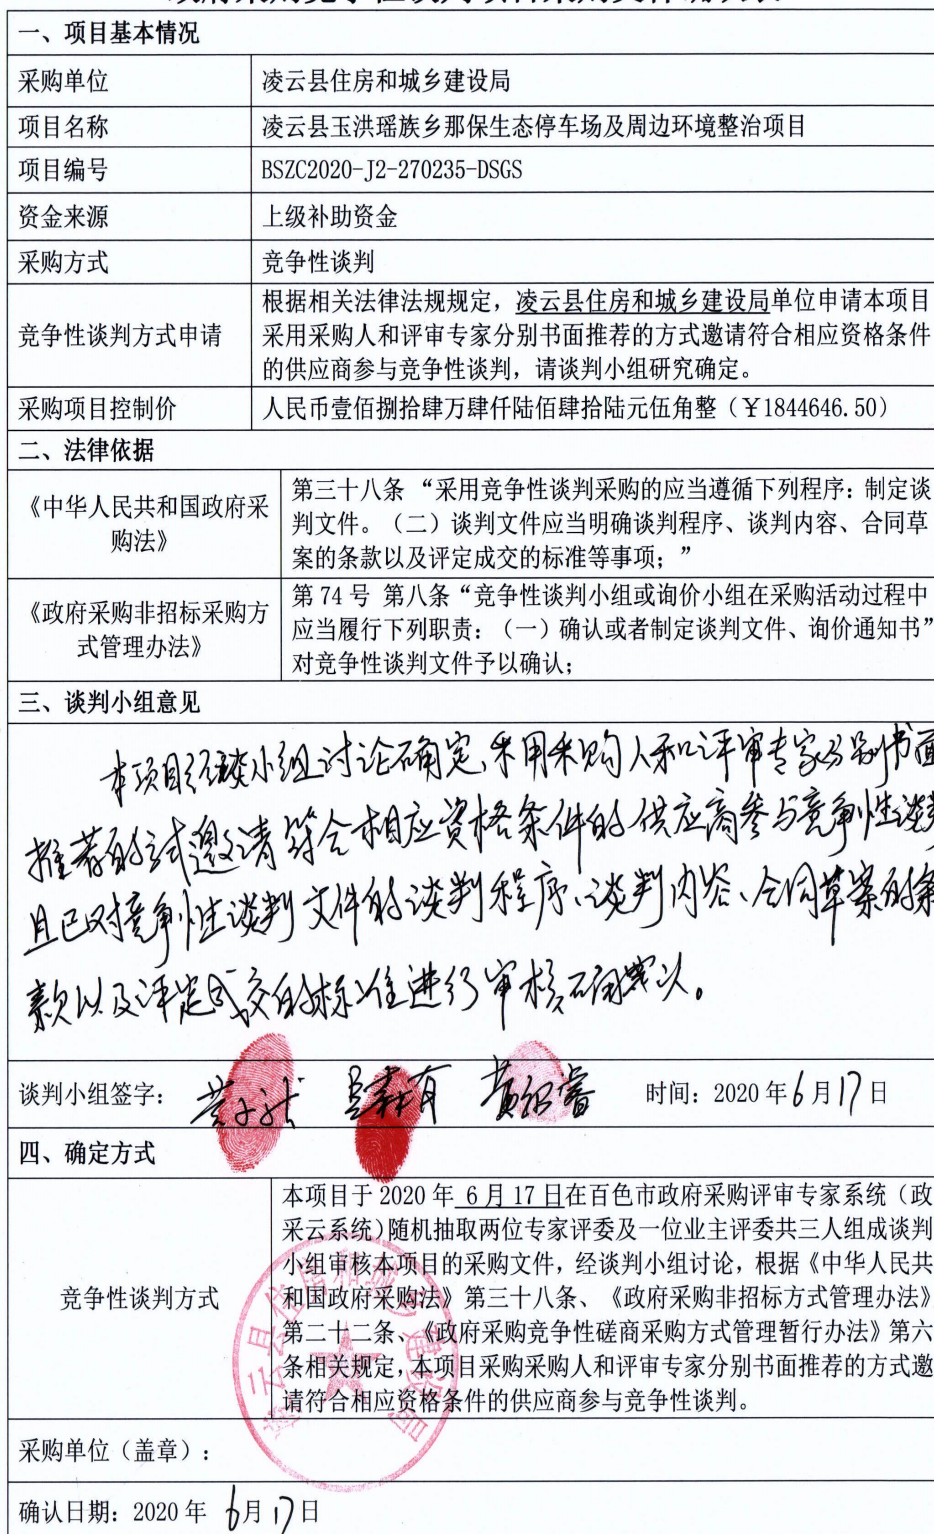 一、项目基本情况
采购单位
凌云县住房和城乡建设局
项目名称
凌云县玉洪瑶族乡那保生态停车场及周边环境整治项目
项目编号
BSZC2020-J2-270235-DSGS
资金来源
上级补助资金
采购方式
竞争性谈判
竞争性谈判方式申请
根据相关法律法规规定，凌云县住房和城乡建设局单位申请本项目
采用采购人和评审专家分别书面推荐的方式邀请符合相应资格条件
的供应商参与竞争性谈判，请谈判小组研究确定。
采购项目控制价
人民币壹佰捌拾肆万肆仟陆佰肆拾陆元伍角整（￥1844646.50）
二、法律依据
《中华人民共和国政府采
购法》
第三十八条 “采用竞争性谈判采购的应当遵循下列程序：制定谈
判文件。（二）谈判文件应当明确谈判程序、谈判内容、合同草
案的条款以及评定成交的标准等事项；”
《政府采购非招标采购方
式管理办法》
第 74 号 第八条“竞争性谈判小组或询价小组在采购活动过程中
应当履行下列职责：（一）确认或者制定谈判文件、询价通知书”
对竞争性谈判文件予以确认；
三、谈判小组意见
本项目经谈小组讨论确定，采用采购人和评审专家分别书面
推荐的方式邀请符合相应资格条件的供应商参与竞争性谈判
且已对竞争性谈判文件的谈判程序、谈判内容、合同草案的条
款以及评定成交的标准进行审核确认。
谈判小组签字：
黄绍睿
时间：2020 年 6 月 17 日
四、确定方式
竞争性谈判方式
本项目于 2020 年 6 月 17 日在百色市政府采购评审专家系统（政
采云系统)随机抽取两位专家评委及一位业主评委共三人组成谈判
小组审核本项目的采购文件，经谈判小组讨论，根据《中华人民共
和国政府采购法》第三十八条、《政府采购非招标方式管理办法》
第二十二条、《政府采购竞争性磋商采购方式管理暂行办法》第六
条相关规定，本项目采购采购人和评审专家分别书面推荐的方式邀
请符合相应资格条件的供应商参与竞争性谈判。
凌云县住房和城乡建设局
采购单位（盖章）：
确认日期：2020 年 6 月 17 日